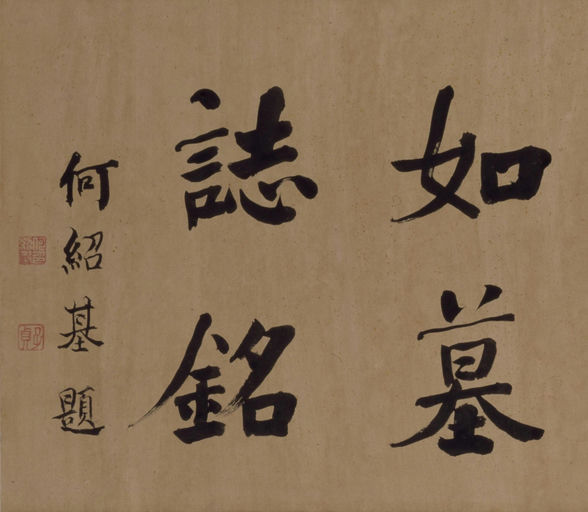 如墓
誌銘
何紹基題
子貞